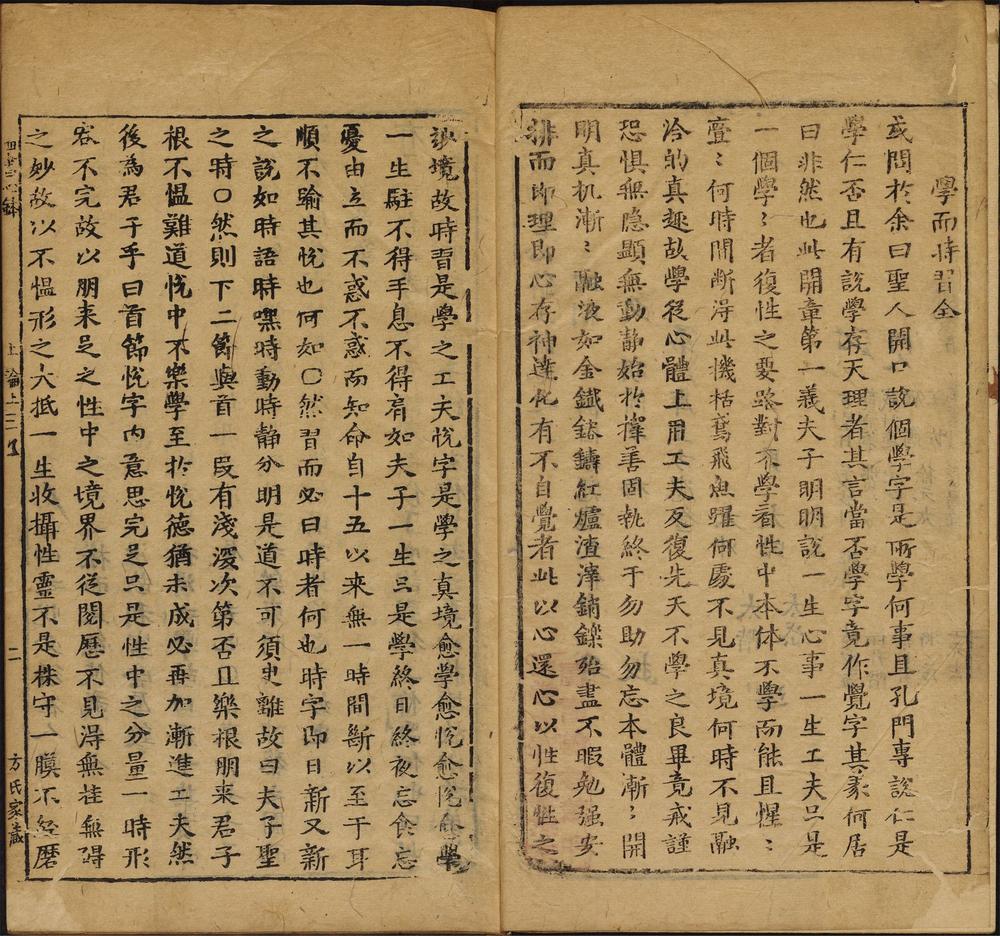 學而時習全
或問於余曰聖人開口說個學字是所學何事且孔門專說仁是
學仁否且有說學存天理者其言當否學字竟作覺字其義何居
曰非然也此開章第一義夫子明明說一生心事一生工夫只是
一個學〻者復性之要路對不學看性中本体不學而能且惺〻
亹〻何時間断淂此機栝鳶飛魚躍何處不見真境何時不見融
洽的真趣故學從心體上用工夫反復先天不學之良畢竟戒謹
恐惧無隐顯無動静始於擇善固執終于勿助勿忘本體漸〻開
明真机漸〻融液如金鐵鎔鑄紅爐渣滓銷鑠殆盡不暇勉强安
排而即理即心存神達化有不自覺者此以心還心以性復性之
妙境故時習是學之工夫悅字是學之真境愈學愈悅愈悅愈學
一生駐不得手息不得肩如夫子一生只是學終日終夜忘食忘
憂由立而不惑不惑而知命自十五以來無一時間斷以至于耳
順不踰其悅也何如〇然習而必曰時者何也時字即日新又新
之說如時語時嘿時動時静分明是道不可須臾離故曰夫子聖
之時〇然則下二節與首一段有淺深次第否且樂根朋來君子
根不慍難道悅中不樂學至於悅德猶未成必再加漸進工夫然
後為君子乎曰首節悅字内意思完足只是性中之分量一時形
容不完故以朋來足之性中之境界不從閱歷不見淂無挂無碍
之妙故以不慍形之大抵一生收攝性靈不是株守一膜不經磨
上論上
二
方氏家藏